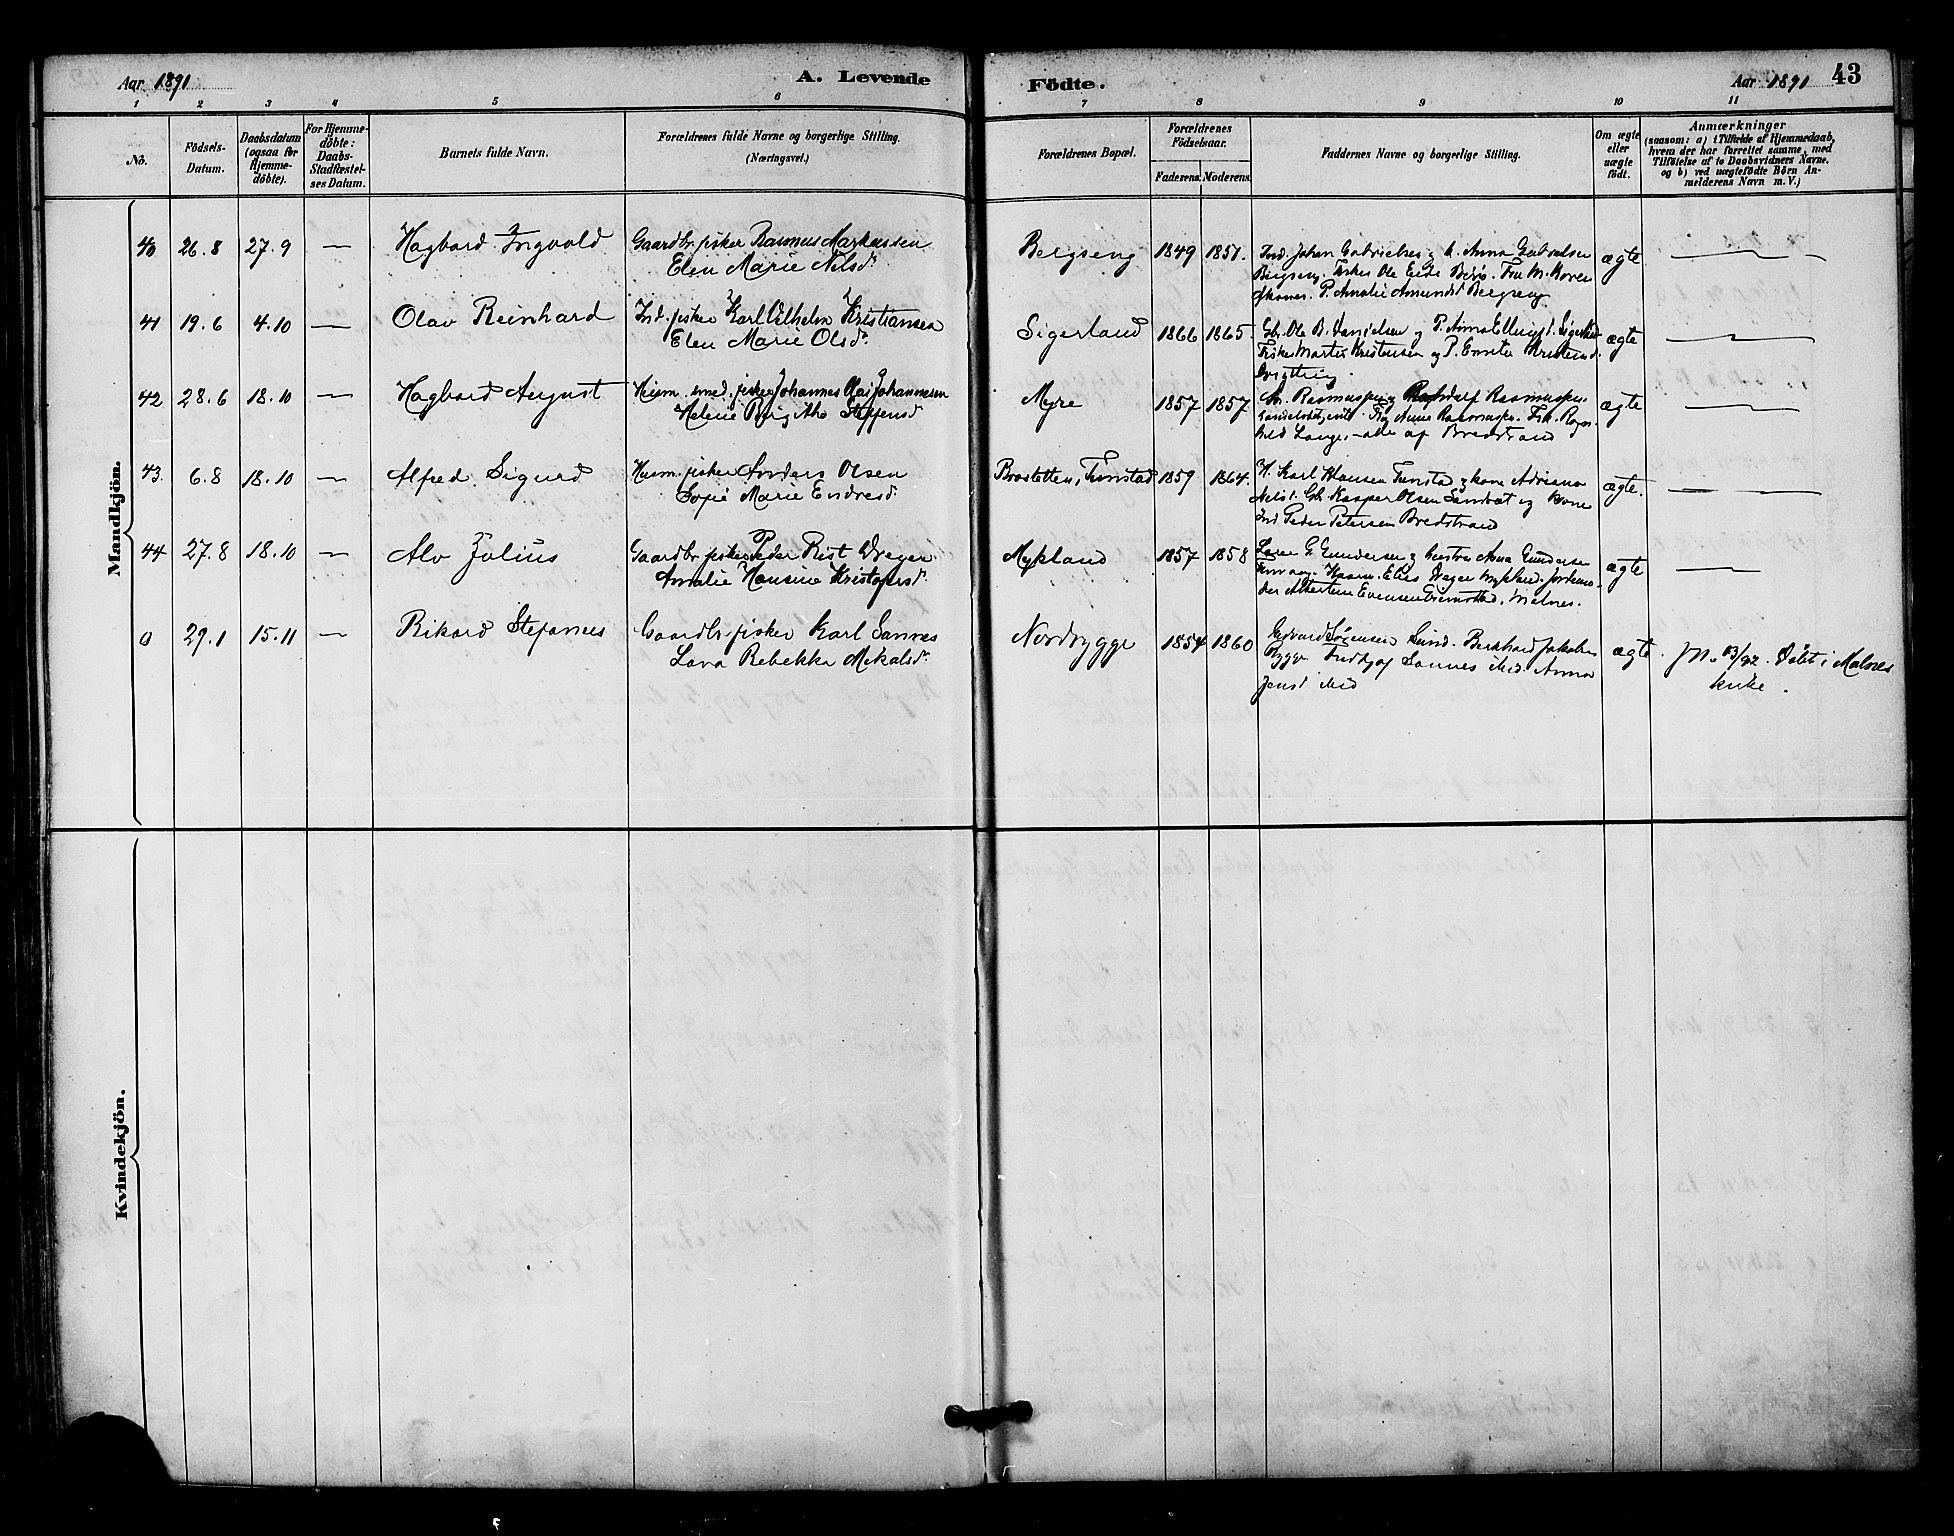 Aar 1891
A. Levende
Födte.
Aar 1891
43
1 2 3 4 5 6 7 8 9 10 11
No.
Födsels-
Datum.
Daabsdatum
(ogsaa for
Hjemme-
döbte).
For Hjemme-
döbte:
Daabs-
Stadfæstel-
ses Datum.
Barnets fulde Navn.
Forældrenes fulde Navne og borgerlige Stilling.
(Næringsvei.)
Forældrenes Bopæl.
Forældrenes
Födselsaar.
Faderens. Moderens.
Faddernes Navne og borgerlige Stilling.
Om ægte
eller
uægte
födt.
Anmærkninger
(saasom: a) i Tilfælde af Hjemmedaab,
hvem der har forrettet samme, med
Tilföielse af to Daabsvidners Navne,
og b) ved uægtefödte Börn An-
melderens Navn m. V.)
Mandkjön.
40 26.8 27.9 — Hagbard Ingvald Gaardbr. fisker Rasmus Markussen
Elen Marie Nilsd.
Bergseng 1849 1851. Ind. Johan Gabrielsen og k. Anna Gabrielsen
Bergseng. Fisker Ole
P. Amalie Amundsd Bergseng.
ægte —
41 19.6 4.10 — Olav Reinhard Ind. fisker Karl Vilhelm Kristiansen
Elen Marie Olsd.
Sigerland 1866 1865. Gbr. Ole B. Danielsen og P.
Fisker Martin Kristensen og P.
ægte —
42 28.6 18.10 — Hagbard August Husm. smed. fisker Johannes Olai Johannesen
Helene Birgithe Steffensd.
Myre 1857 1857 Rasmussen og Rasmussen
Anna Rasmussen. Frk. Ragn-
hild Lange, – alle af Bredstrand
ægte —
43. 6.8 18.10 — Alfred Sigurd Husm. fisker Anders Olsen
Sofie Marie Endresd.
Tunstad 1859 1864. H. Karl Hansen Tunstad og kone Adriana
Nilsd. Gbr. Kasper Olsen Sandset og kone
Ind Peder Petersen Bredstrand
ægte. —
44 27.8 18.10 — Alv Julius Gaardbr. fisker Peder Rist Dreyer
Amalie Hansine Kristofersd.
Mykland 1857 1858 Lærer G. Gundersen og hustru Anna Gundersen
Elias Dreyer Mykland. Jordemo-
der Albertine Evensen Grimstad, Malnes.
ægte —
0 29.1 15.11 — Rikard Stefanus Gaardbr. fisker Karl Sannes
Lava Rebekka Mikalsd.
Nordbygge 1854 1860 Edvard Sørensen Sund. Berhard Jakobsen
Bygge. Fridtjof Sannes Anna
Jensd
ægte. Døbt i Malnes
kirke.
Kvindekjön.